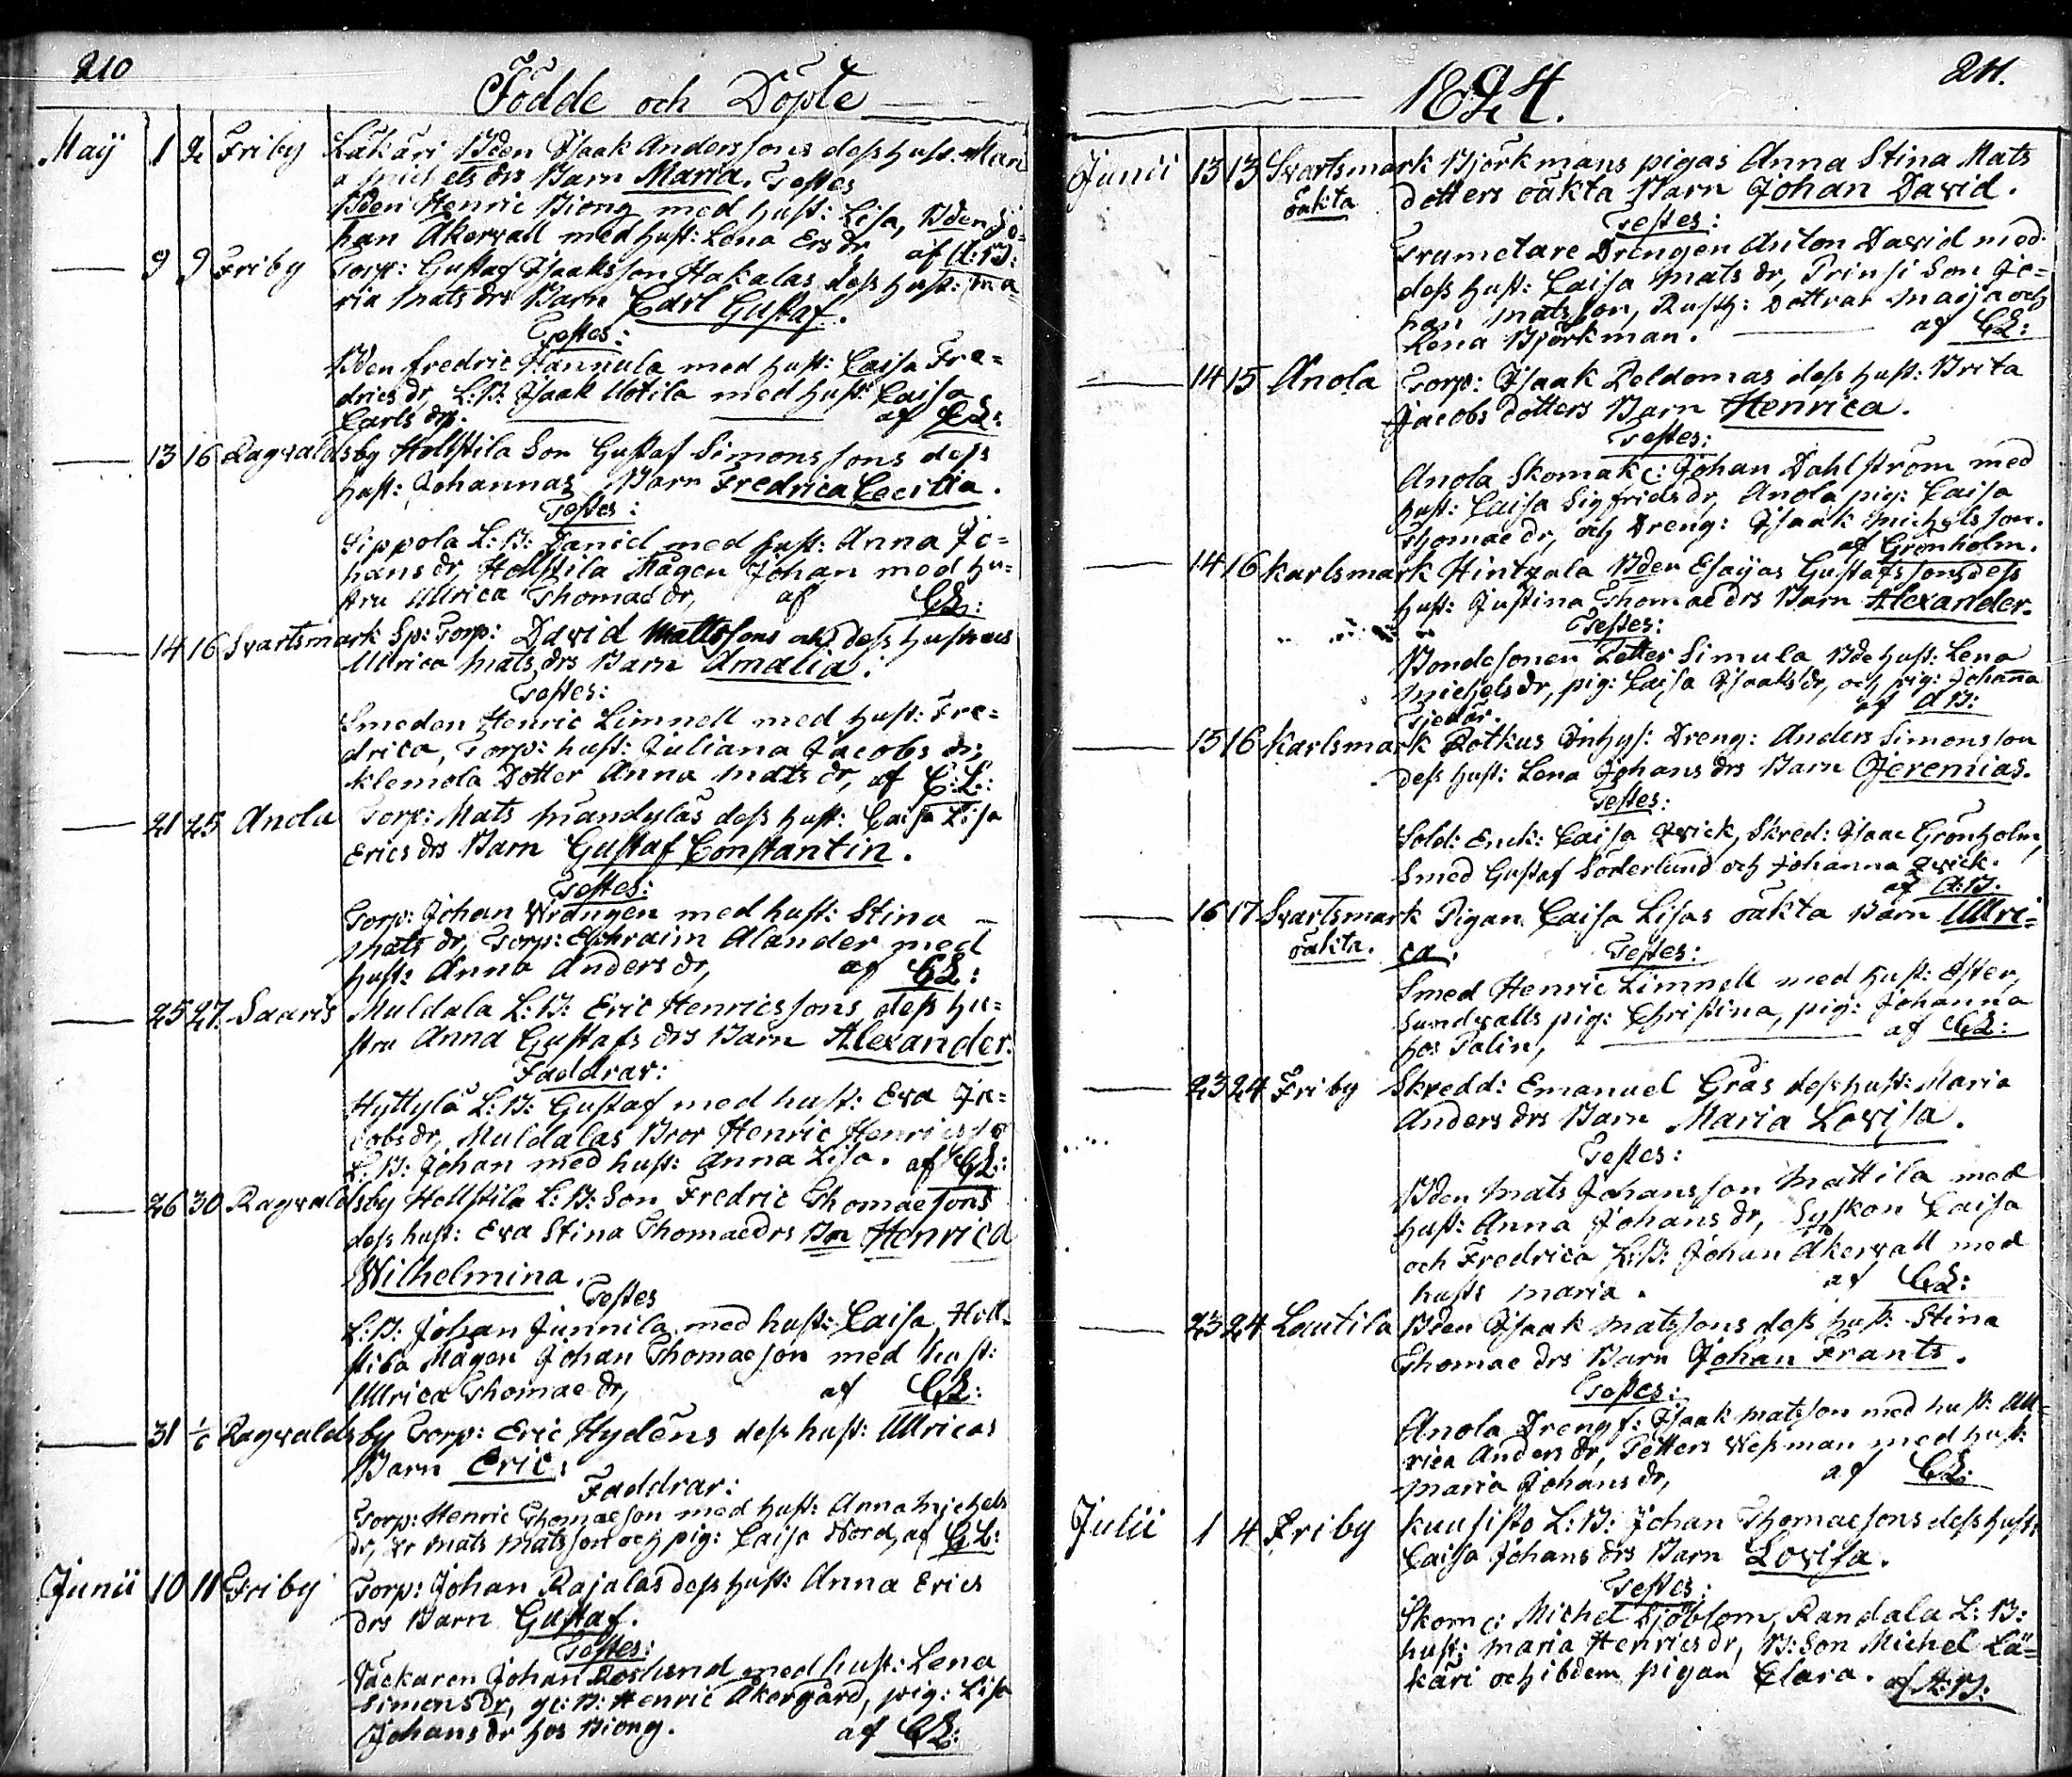 210
Födde och Döpte
Maij 1 2 Friby Läkäri Bden Isaak Anderssons dess hust. Mari
a Mich elsdrs Barn Maria. Testes
Bden Henric Biong med hust: Lisa, Bden Jo=
han Åkervall med hust: Lena Ersdr, af A:B:
9 9 Friby Torp: Gustaf Isaksson Hakalas dess hust: Ma=
ria Matsdrs Barn Carl Gustaf.
Testes:
Bden Fredric Hannula med hust: Caisa Fre=
drics dr, L:B: Isaak Uotila med hust: Caisa
Carls dr. af CL:
13 16 Ragvaldsby Hollstila Son Gustaf Simonssons dess
hust: Johannas Barn Fredrica Cecilia.
Testes:
Sippola L:B: Daniel med hust: Anna Jo=
hans dr, Hollstila Mågen Johan med hu=
stru Ullrica Thomae dr, af CL:
14 16 Svartsmark Sp: Torp: David Mattssons och dess hustrus
Ullrica Matsdrs Barn Amalia:
Testes:
Smeden Henric Limnell med hust: Fre=
drica, Torp: hust: Juliana Jacobs dr,
Klemola Dotter Anna Mats dr, af C:L:
21 25 Anola Torp: Mats Mandylas dess hust: Caisa Lisa
Erics drs Barn Gustaf Constantin.
Testes:
Torp: Johan Wrången med hust: Stina
Mats dr, Torp: Ephraim Alander med
hust: Anna Anders dr, af CL:
25 27. Saaris Muldala L:B: Eric Henricssons dess hu=
stru Anna Gustafs drs Barn Alexander.
Faddrar:
Hyttylä L:B: Gustaf med hust: Eva Ja=
cobs dr, Muldalas Bror Henric Henricsso
L:B: Johan med hust: Anna Lisa. af CL:
26 30 Ragvaldsby Hollstila L:B: Son Fredric Thomaesons
dess hust: Eva Stina Thomaedrs Bn Henrica
Wilhelmina.
Testes
L:B: Johan Junnila med hust: Caisa, Holl=
stila Mågen Johan Thomaeson med hust:
Ullrica Thomae dr, af CL:
31 1/6 Ragvaldsby Torp: Eric Hydéns dess hust: Ullricas
Barn Eric:
Faddrar:
Torp: Henric Thomaeson med hust: Anna Michels
dr, Mats Matsson och pig: Caisa Nord, af CL:
Junii 10 11 Friby Torp: Johan Rajalas dess hust: Anna Erics
drs Barn Gustaf.
Testes:
Johan Roslund med hust: Lena
Simons dr, B: Henric Åkergård, pig: Lisa
Johans dr hos Biong. af CL:
1824. 211.
Junii 13 13 Svartsmark Björkmans pigas Anna Stina Mats
oäkta dotters oäkta Barn Johan David.
Testes:
Trumetare Drengen Anton David med
dess hust: Caisa Mats dr, Prinsi Son Jo=
han Matsson, Rusth: Dottrar Maja och
Lena Björkman. af CL:
14 15 Anola Torp: Isaak Peldomas dess hust: Brita
Jacobs dotters Barn Henrica.
Testes:
Anola Skomak: Johan Dahlström med
hust: Caisa Sigfrids dr, Anola pig: Caisa
Thomae dr, och Dreng: Isaak Michelsson.
af Grönholm.
14 16 Karlsmark Hintzala Bden Esaijas Gustafssons dess
hust: Justina Thomae drs Barn Alexander.
Testes:
Bondesonen Petter Simula Bde hust: Lena
Michels dr, pig: Caisa Isaaks dr, och pig: Johanna
Tjeder. af AB:
15 16 Karlsmark Potkus Inhys: Dreng: Anders Simonsson
dess hust: Lena Johans drs Barn Jeremias.
Testes:
Sold: Enck: Caisa Qvick, Skred: Isaac Grönholm,
Smed Gustaf Söderlund och Johanna Qvick.
af A:B.
16 17 Svartsmark Pigan Caisa Lisas oäkta Barn Ullri=
oäkta. ca. Testes:
Smed Henric Limnell med hust: Ester,
Sundvalls pig: Christina, pig: Johanna
hos Palin, af CL:
23 24 Friby Skredd: Emanuel Grås dess hust: Maria
Anders drs Barn Maria Lovisa.
Testes:
Bden Mats Johansson Mattila med
hust: Anna Johans dr, Syskon Caisa
och Fredrica L:B: Johan Åkervall med
hust: Maria. af CL:
23 24 Lautila Bden Isaak Matssons dess hust: Stina
Thomae drs Barn Johan Frants.
Testes:
Anola Drengs: Isaak Matsson med hust: Ull=
rica Anders dr, Petters Wessman med hust:
Maria Johans dr, af CL:
Julii 1 4 Friby Kuusisto L:B: Johan Thomaesons dess hust:
Caisa Johans drs Barn Lovisa.
Testes:
Skom: Michel Sjöblom, Randala L:B:
hust: Maria Henrics dr, B: Son Michel Lä=
käri och ibdem pigan Clara. af A:B: